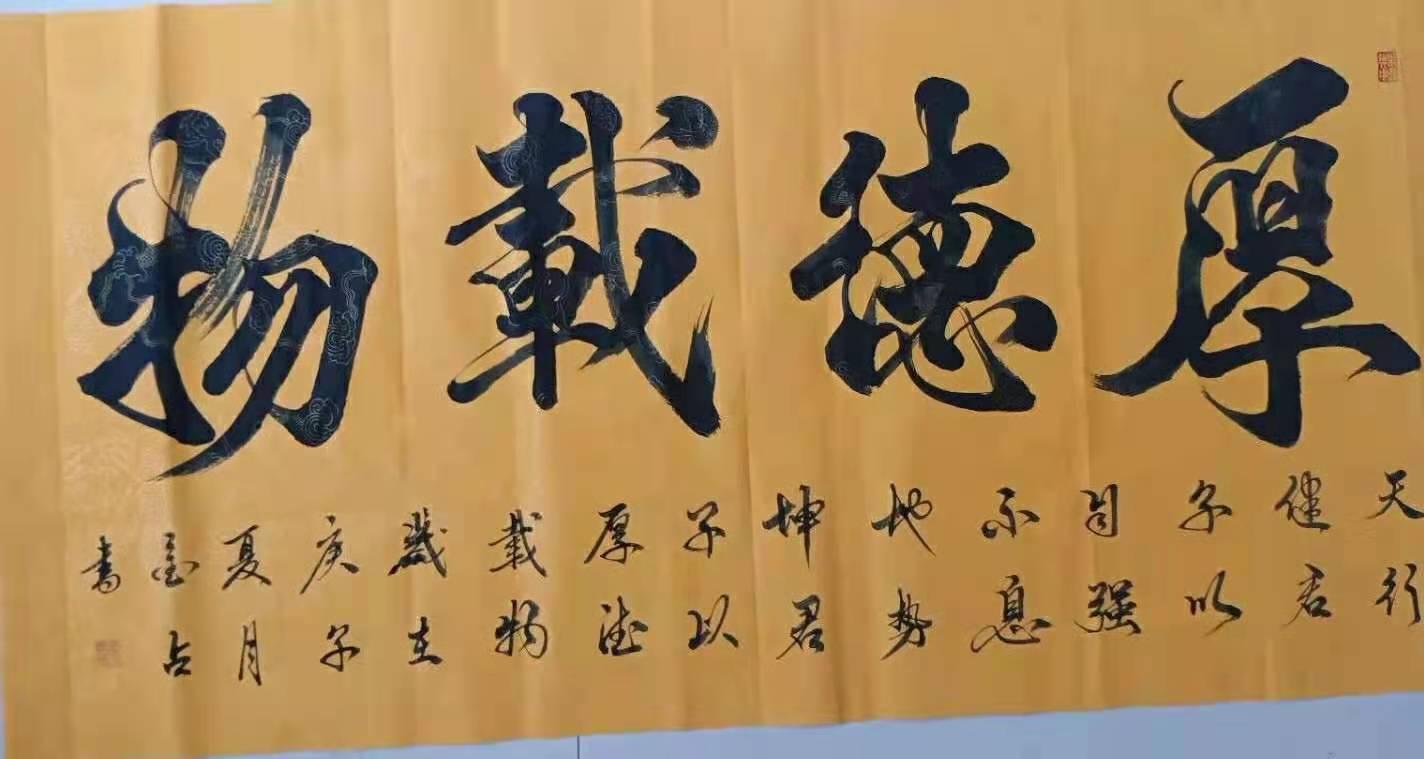 厚德載物
天行
健君
子以
自强
不息
地势
坤君
子以
厚德
載物
歲在
庚子
夏月
占
書